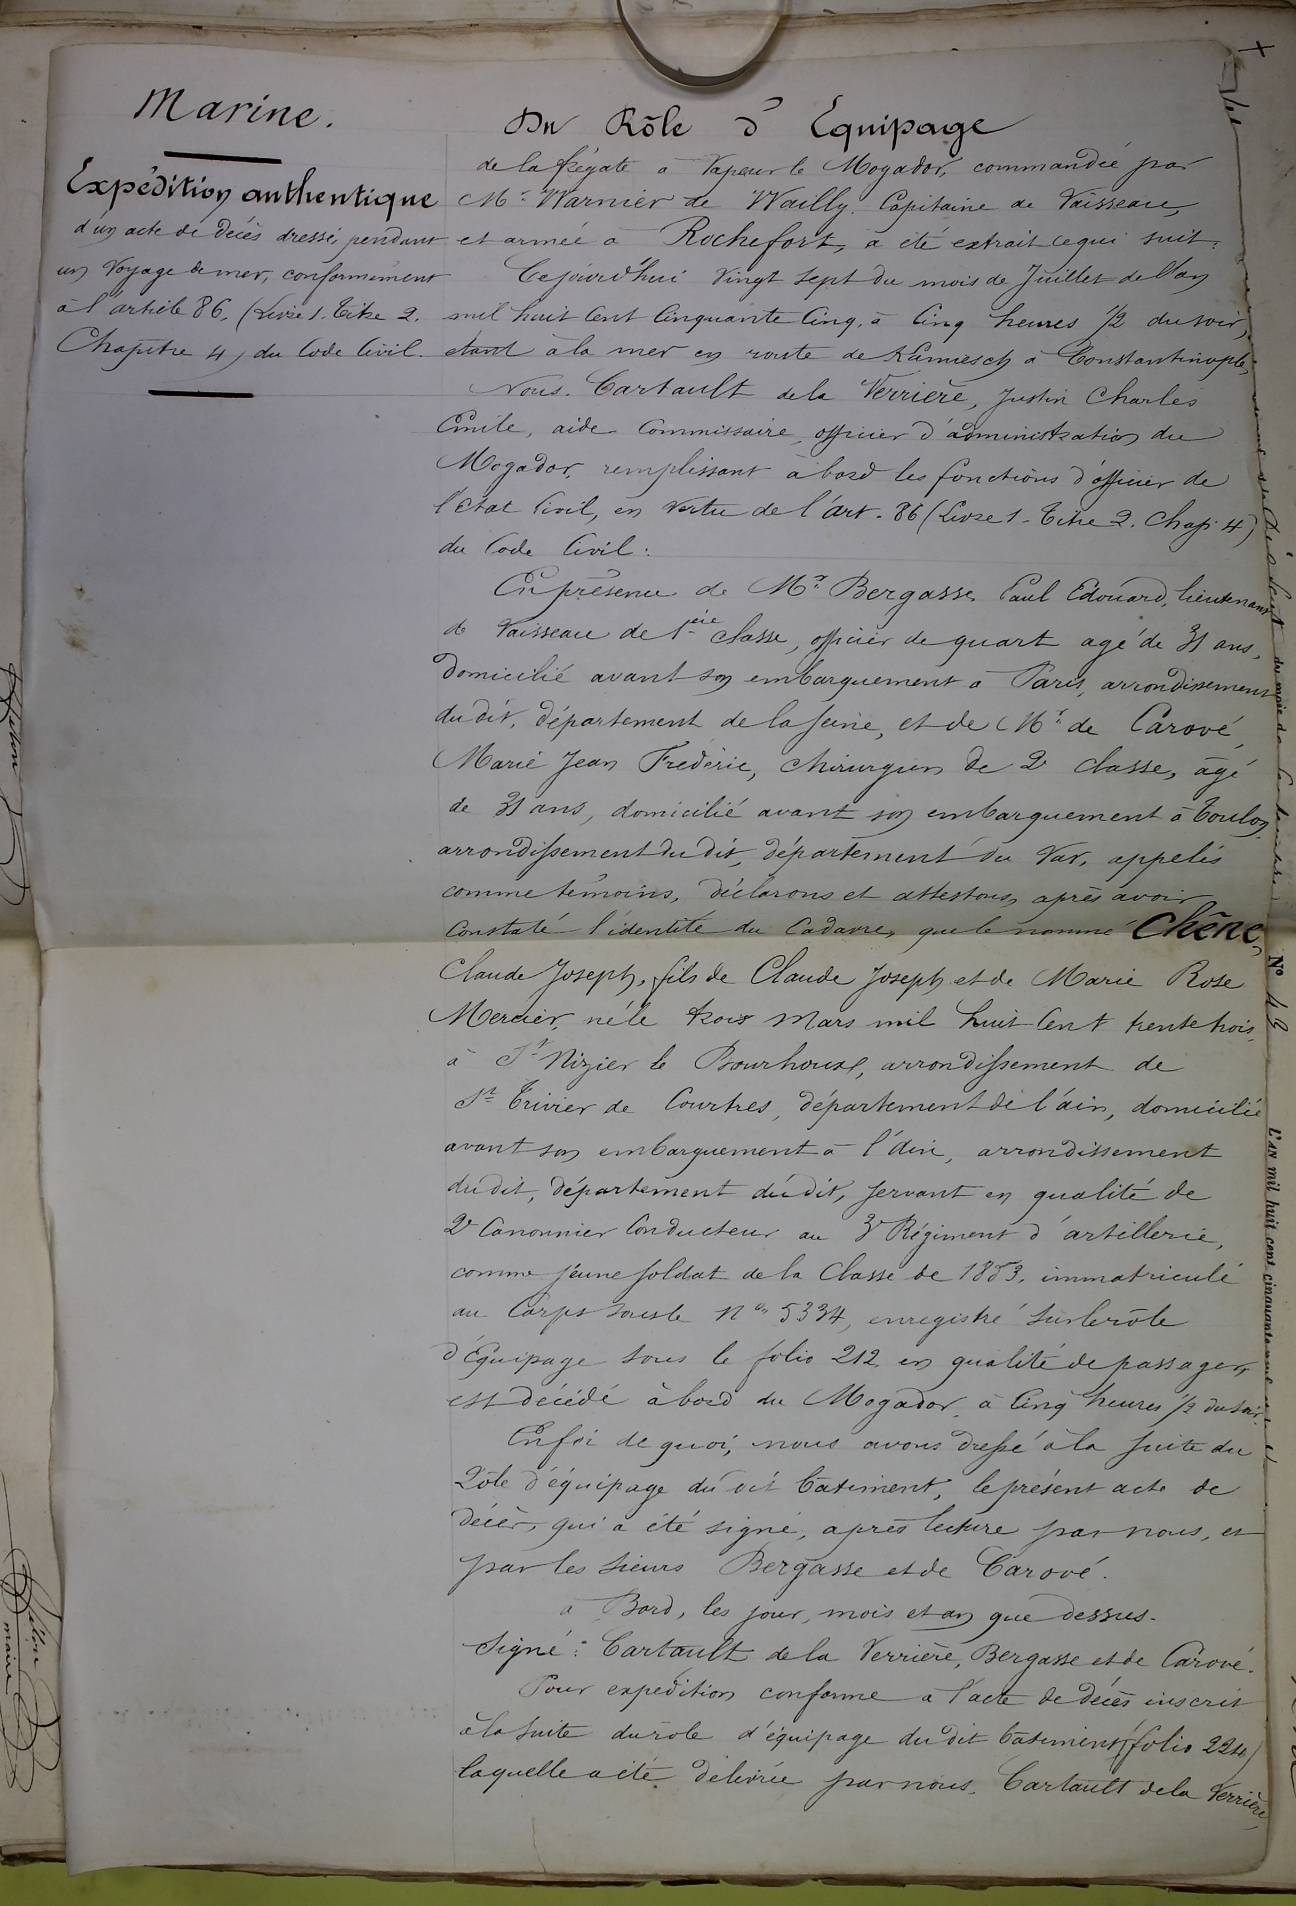 Marine.
Expédition authentique
d'un acte de décès dressé pendant
un voyage de mer, conformément
à l'article 86, (Livre 1. Titre 2.
Chapitre 4) du Code Civil.
Du Rôle d'Equipage
de la frégate à vapeur le Mogador, commandée par
Mr. Warnier de Wailly. Capitaine de Vaisseau,
et armée à Rochefort, a été extrait ce qui suit:
Cejourd'hui vingt sept du mois de Juillet de l'an
mil huit cent cinquante cinq, à cinq heures 1/2 du soir,
étant à la mer en route de Kamiesch à Constantinople,
Nous. Cartault de la Verrière, Justin Charles
Emile, aide Commissaire, officier d'administration du
Mogador, remplissant à bord les fonctions d'officier de
l'état Civil, en vertu de l'art. 86 (Livre 1. Titre 2. Chap. 4)
du Code Civil:
En présence de Mr. Bergasse, Paul Edouard, lieutenant
de Vaisseau de 1ère classe, officier de quart agé de 31 ans,
domicilié avant son embarquement à Paris, arrondissement
dudit, département de la Seine, et de Mr. de Carové,
Marie Jean Frédéric, chirurgien de 2e classe, âgé
de 31 ans, domicilié avant son embarquement à Toulon
arrondissement dudit, département du Var, appelés
comme témoins, déclarons et attestons, après avoir
constaté l'identité du cadavre, que le nommé Chêne,
Claude Joseph, fils de Claude Joseph et de Marie Rose
Mercier, né le trois Mars mil huit cent trente trois,
à St. Nizier le Bourhoux, arrondissement de
St. Trivier de Courtres, département de l'ain, domicilié
avant son embarquement à l'din, arrondissement
dudit, département dudit, servant en qualité de
2e Canonnier Conducteur au 3e Régiment d'artillerie,
comme jeune soldat de la Classe de 1853, immatriculé
au Corps sous le No. 5334, enregistré sur le rôle
d'équipage sous le folio 212 en qualité de passager,
est décédé à bord du Mogador, à cinq heures 1/2 du soir.
En foi de quoi, nous avons dressé à la suite du
Rôle d'équipage du dit bâtiment, le présent acte de
décès, qui a été signé, après lecture par nous, et
par les sieurs Bergasse et de Carové.
à Bord, les jour, mois et an que dessus.
Signé: Cartault de la Verrière, Bergasse et de Carové.
Pour expédition conforme à l'acte de décès inscrit
à la suite du rôle d'équipage du dit bâtiment (folio 224)
laquelle a été délivrée par nous. Cartault de la Verrière,
No 43
L'AN mil huit cent cinquante
maire